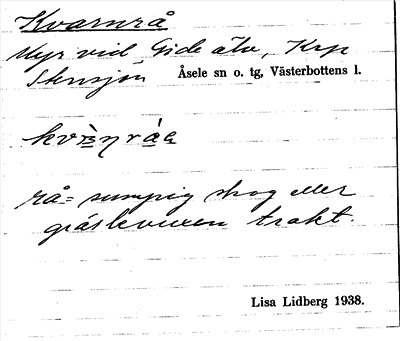 Kvarnrå
Myr vid Gide älv, Krp
Stensjön Åsele sn o. tg, Västerbottens l.
rå = sumpig skog eller
gräsbevuxen trakt.
Lisa Lidberg 1938.